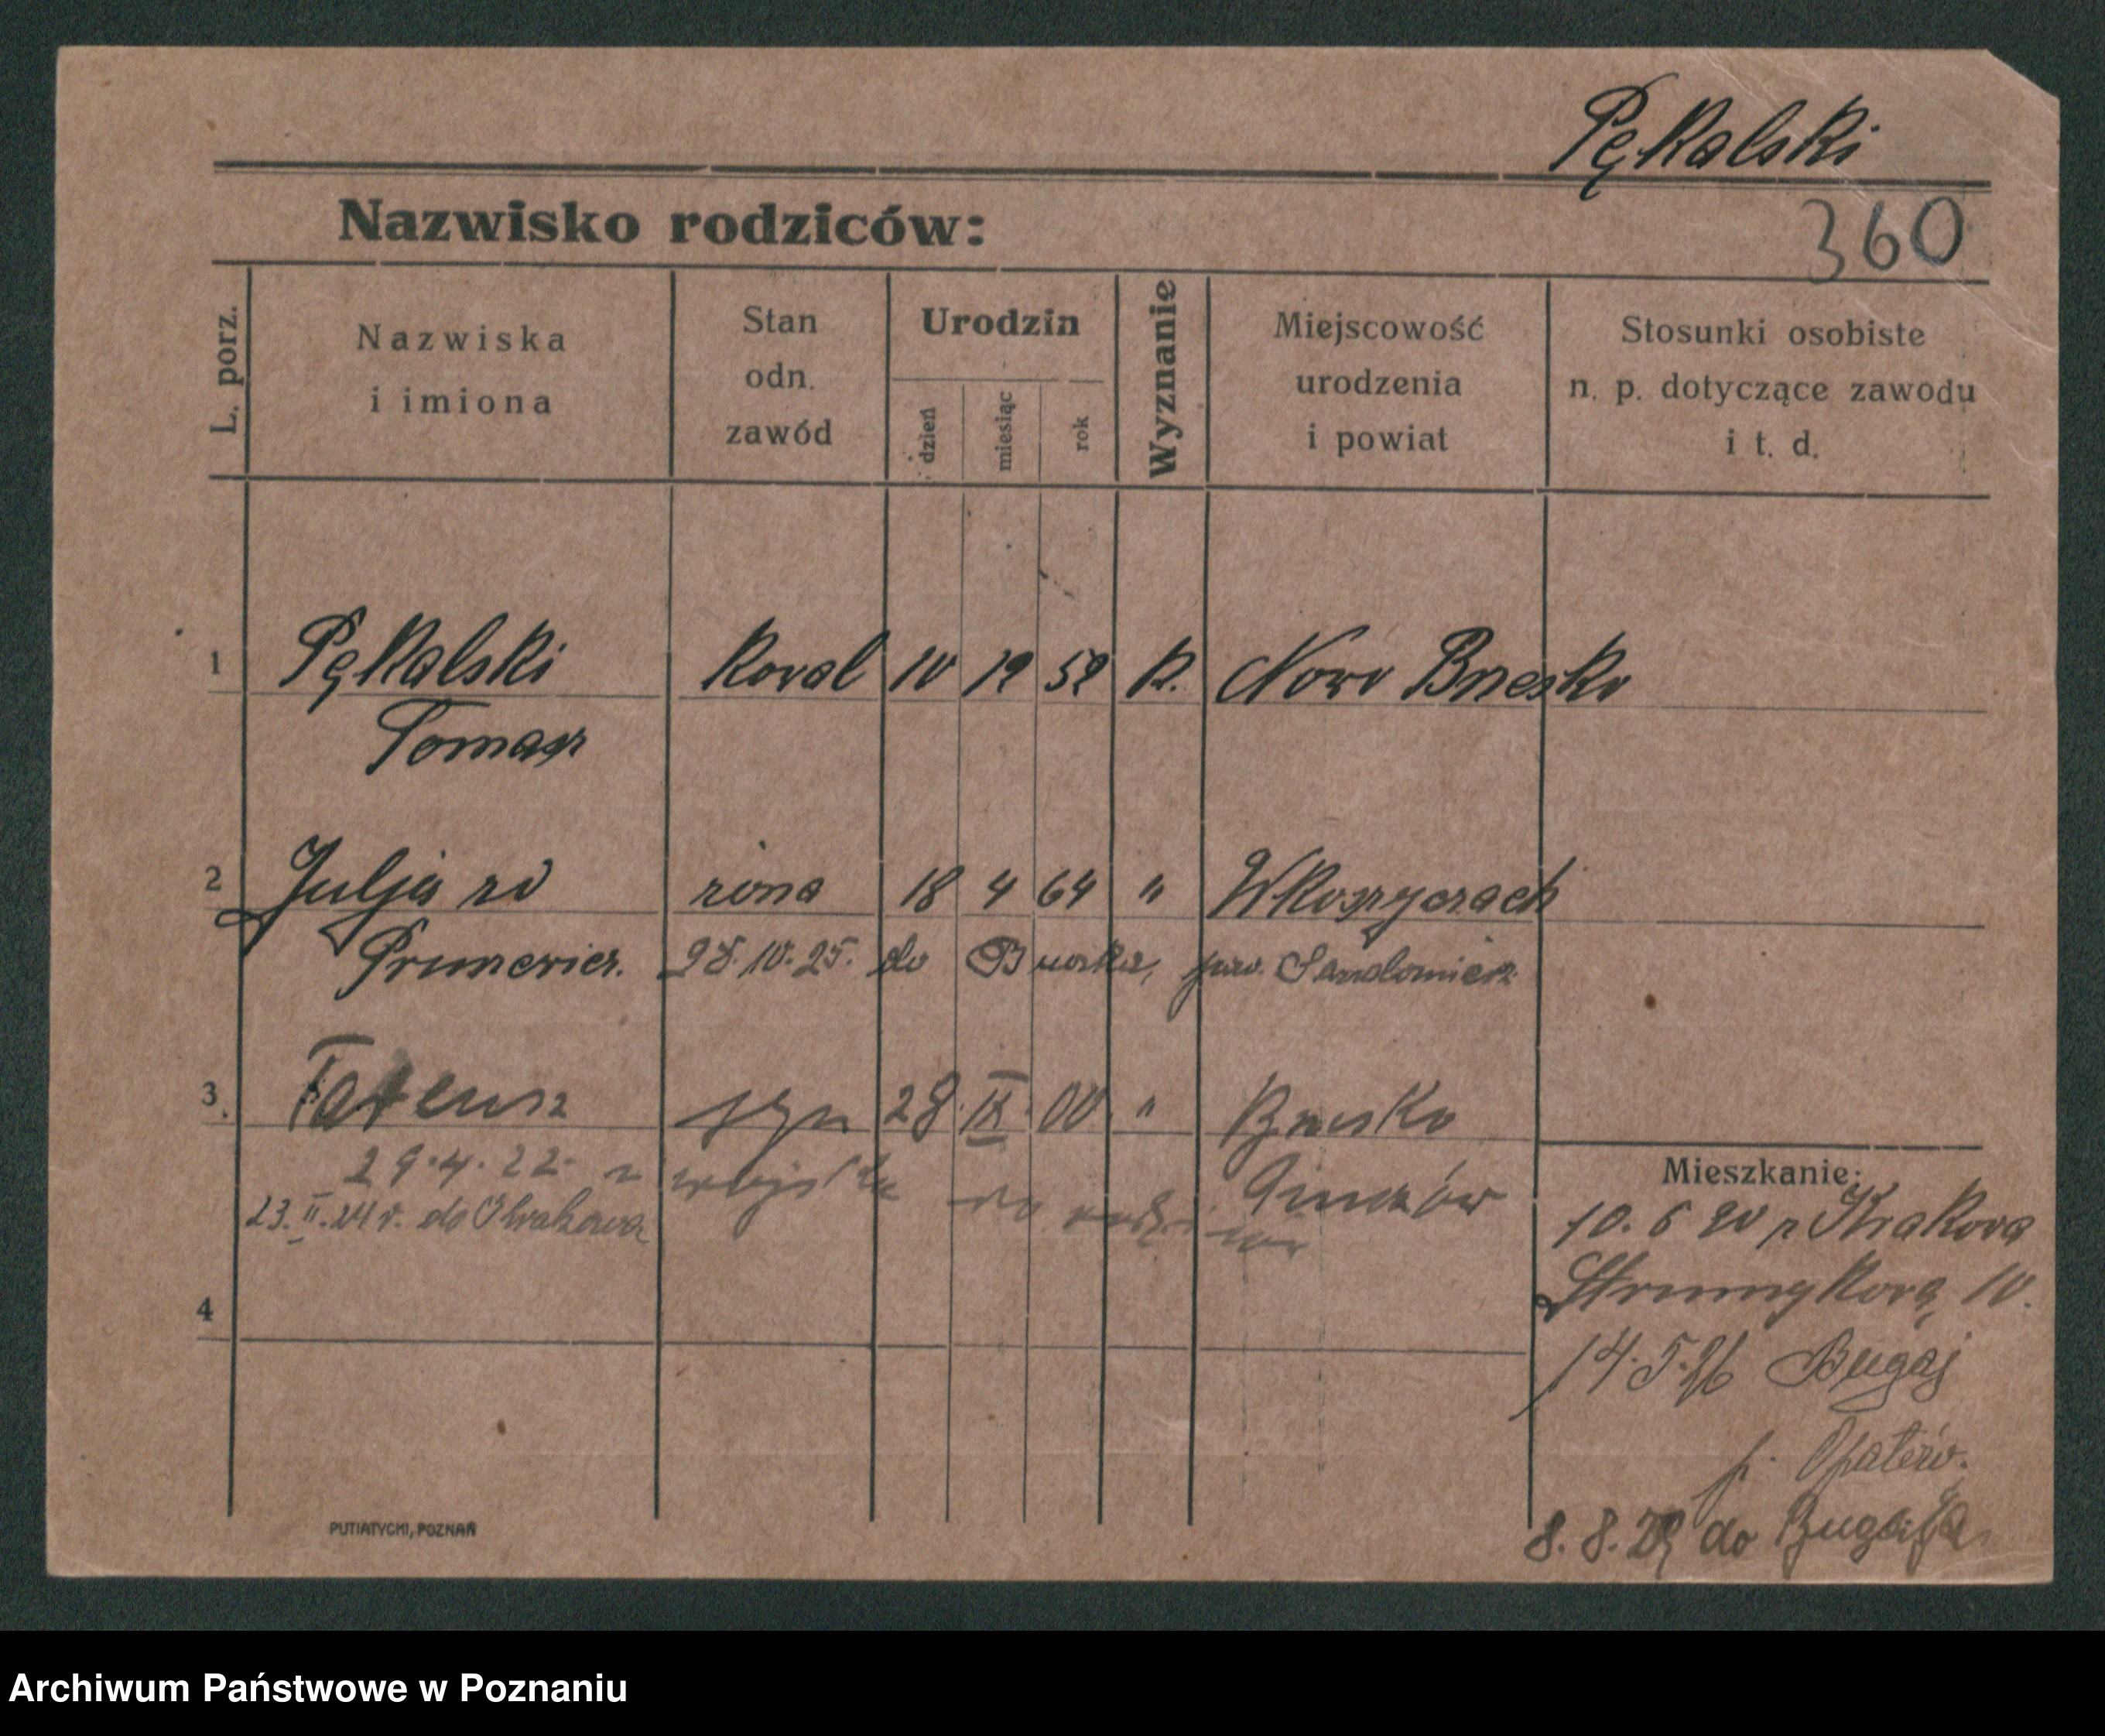 Pękalski
Nazwisko rodziców:
360
L. porz.
Nazwiska
i imiona
Stan
odn.
zawód
Urodzin
dzień
miesiąc
rok
Wyznanie
Miejscowość
urodzenia
i powiat
Stosunki osobiste
n. p. dotyczące zawodu
i t. d.
1 Pękalski koval 10 12 52 k. Novo Bnesko
Tomasz
2 Julja zd żona 18 4 64 " Wkoszyczach
28.10.25. do Buska, pow. Sandomierz
3. syn 28. IX. 00. " Bnesko
29.4.22. z wojska do
23.II.24 r. do Krakowa
Mieszkanie:
10.6 20 z Krakova
Strumykova, 10.
14.5.26 Bugaj
p. Opatów.
8.8. do Bugaja
4
PUTIATYCKI, POZNAŃ
Archiwum Państwowe w Poznaniu